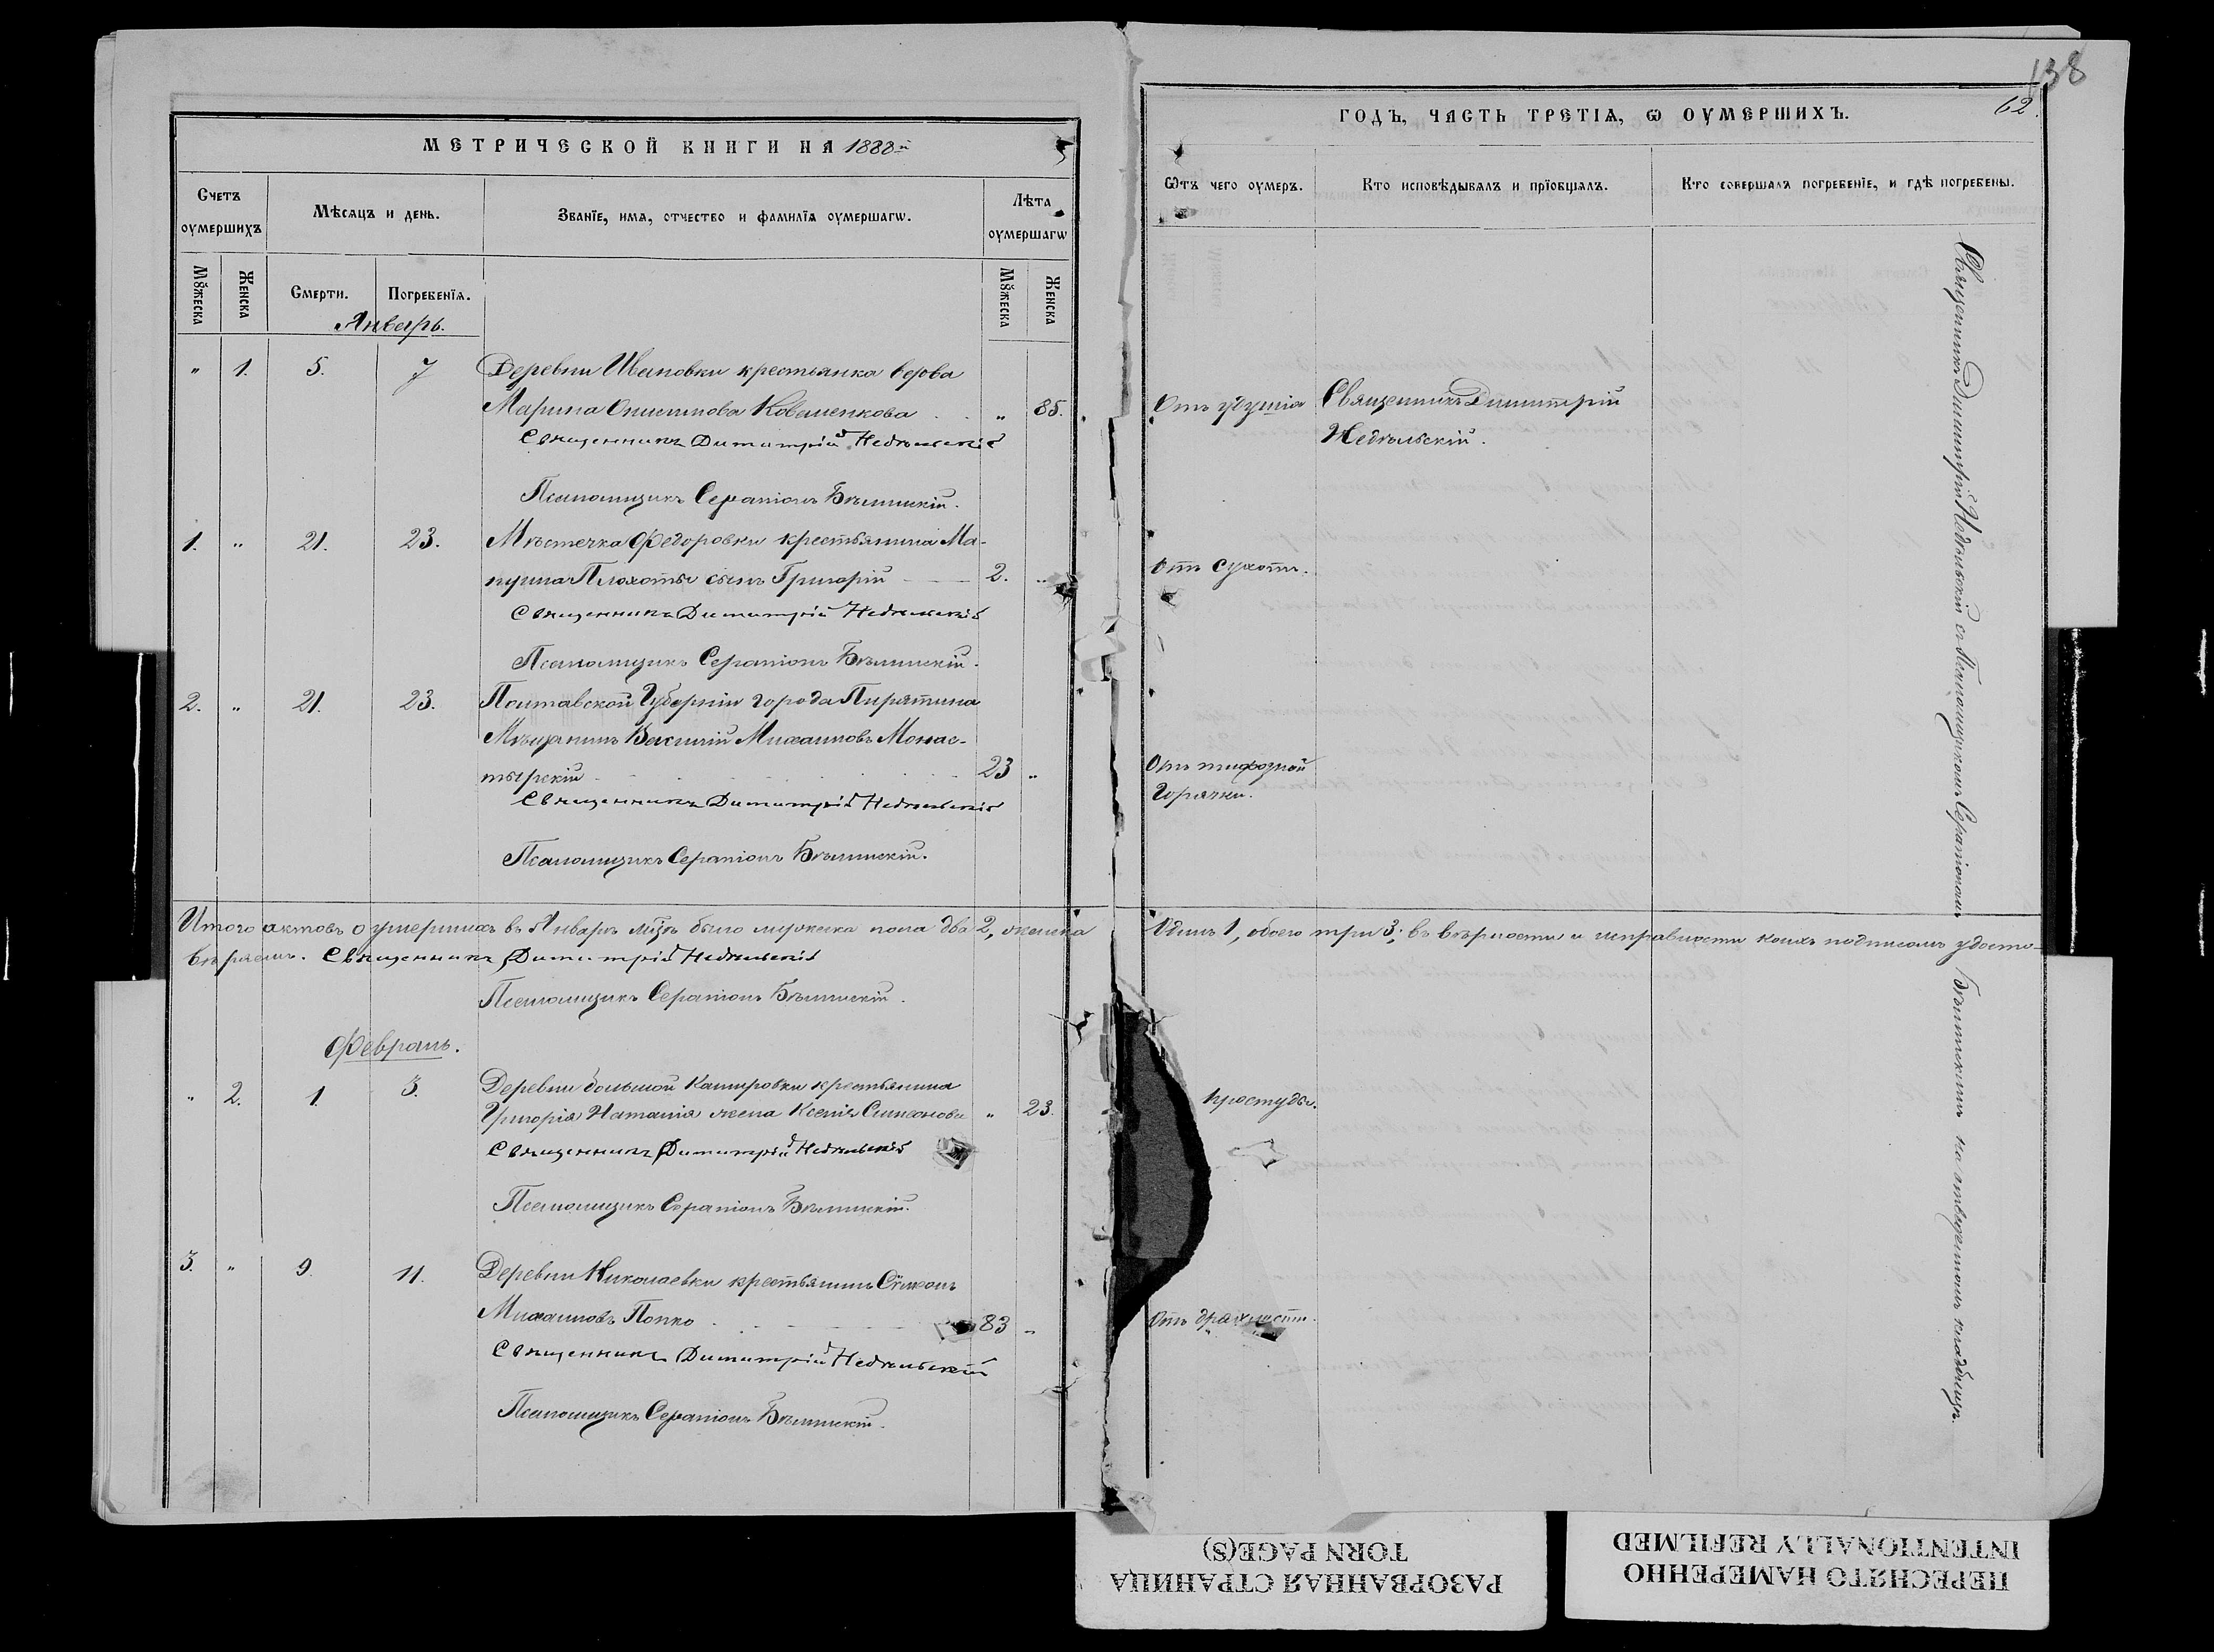 138
62.
МЕТРИЧЕСКОЙ КНИГИ НА 1888й
ГОДЪ, ЧАСТЬ ТРЕТІѦ, Ѡ ОУМЕРШИХЪ.
Счетъ оумершихъ
Мѣсяцъ и день.
Званїе, имѧ, отчество и фамилїѧ оумершагѡ.
Лѣта оумершагѡ
Ѿтъ чего оумеръ.
Кто исповѣдывалъ и прїобщалъ.
Кто совершалъ погребенїе, и гдѣ погребены.
Мꙋжеска
Женска
Смерти.
Погребенїѧ.
Мꙋжеска
Женска
Январь.
" 1. 5. 7 Деревни Ивановки крестьянка вдова
Марина Ковалепкова " 85. Отъ удушія Священникъ Димитрій
Священникъ Димитрій Недѣльскій Недѣльскій.
Псаломщикъ Серапіонъ Бѣлинскій.
1. " 21. 23. Мѣстечка Федоровки крестьянина Ма-
пуила Плохоты сынъ Григорій 2. " отъ сухотъ.
Священникъ Димитрій Недѣльскій
Псаломщикъ Серапіонъ Бѣлинскій.
2. " 21. 23. Полтавской Губерніи города Пирятина
Мѣщанинъ Василій Михаиловъ Монас-
тырскій 23 " Отъ тифозной
Горячки.
Священникъ Димитрій Недѣльскій
Псаломщикъ Серапіонъ Бѣлинскій.
Итого актовъ о умершихъ въ Январѣ м͠цѣ было мужеска пола два 2, женска Одинъ 1, обоего три 3; въ вѣрности и исправности коихъ подписомъ удосто-
вѣряемъ. Священникъ Димитрій Недѣльскій
Псаломщикъ Серапіонъ Бѣлинскій.
Февраль.
" 2. 1. 3. Деревни большой Кашировки крестьянина
Григорія Наталія жена Ксенія Симеонова " 23. простуды.
Священникъ Димитрій Недѣльскій
Псаломщикъ Серапіонъ Бѣлинскій.
3. " 9. 11. Деревни Николаевки крестьянинъ Симеонъ
Михаиловъ Попко 83 " Отъ драхлости.
Священникъ Димитрій Недѣльскій
Псаломщикъ Серапіонъ Бѣлинскій.
Священникъ Димитрій Недѣльскій съ Псаломщикомъ Серапіономъ Бѣлинскимъ на отведенномъ кладбищѣ.
РАЗОРВАННАЯ СТРАНИЦА
TORN PAGE(S)
ПЕРЕСНЯТО НАМЕРЕННО
INTENTIONALLY REFILMED